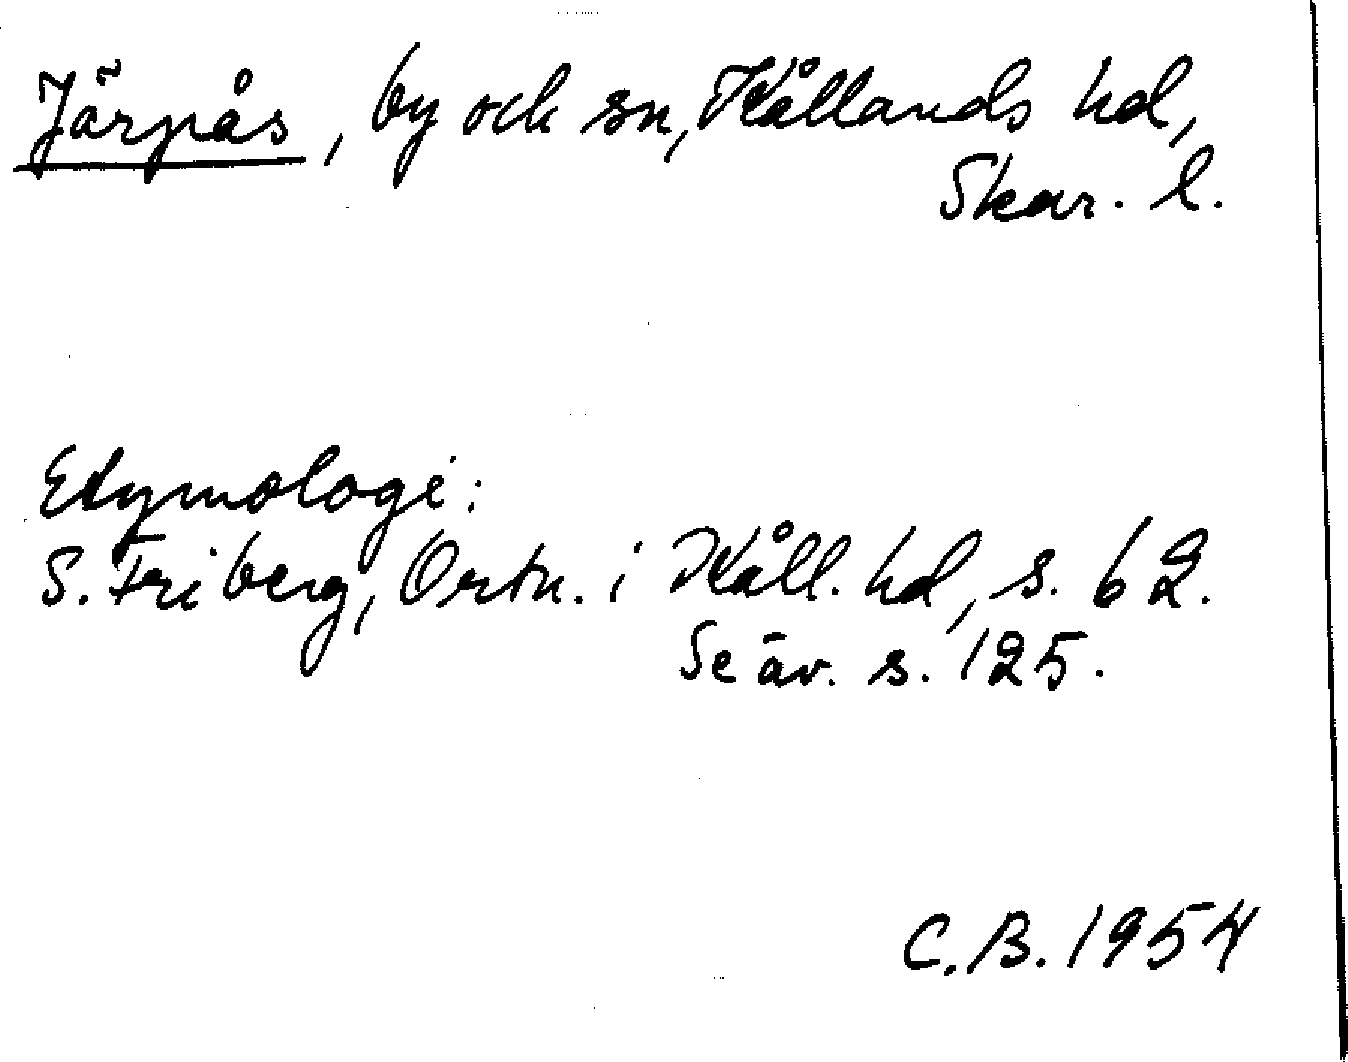 Järpås, by ock sn, Kållands hd,
Skar. l.
Etymologi:
S. Friberg, Ortn. i Kåll. hd, s. 62.
Se äv. s. 125.
C.B. 1954